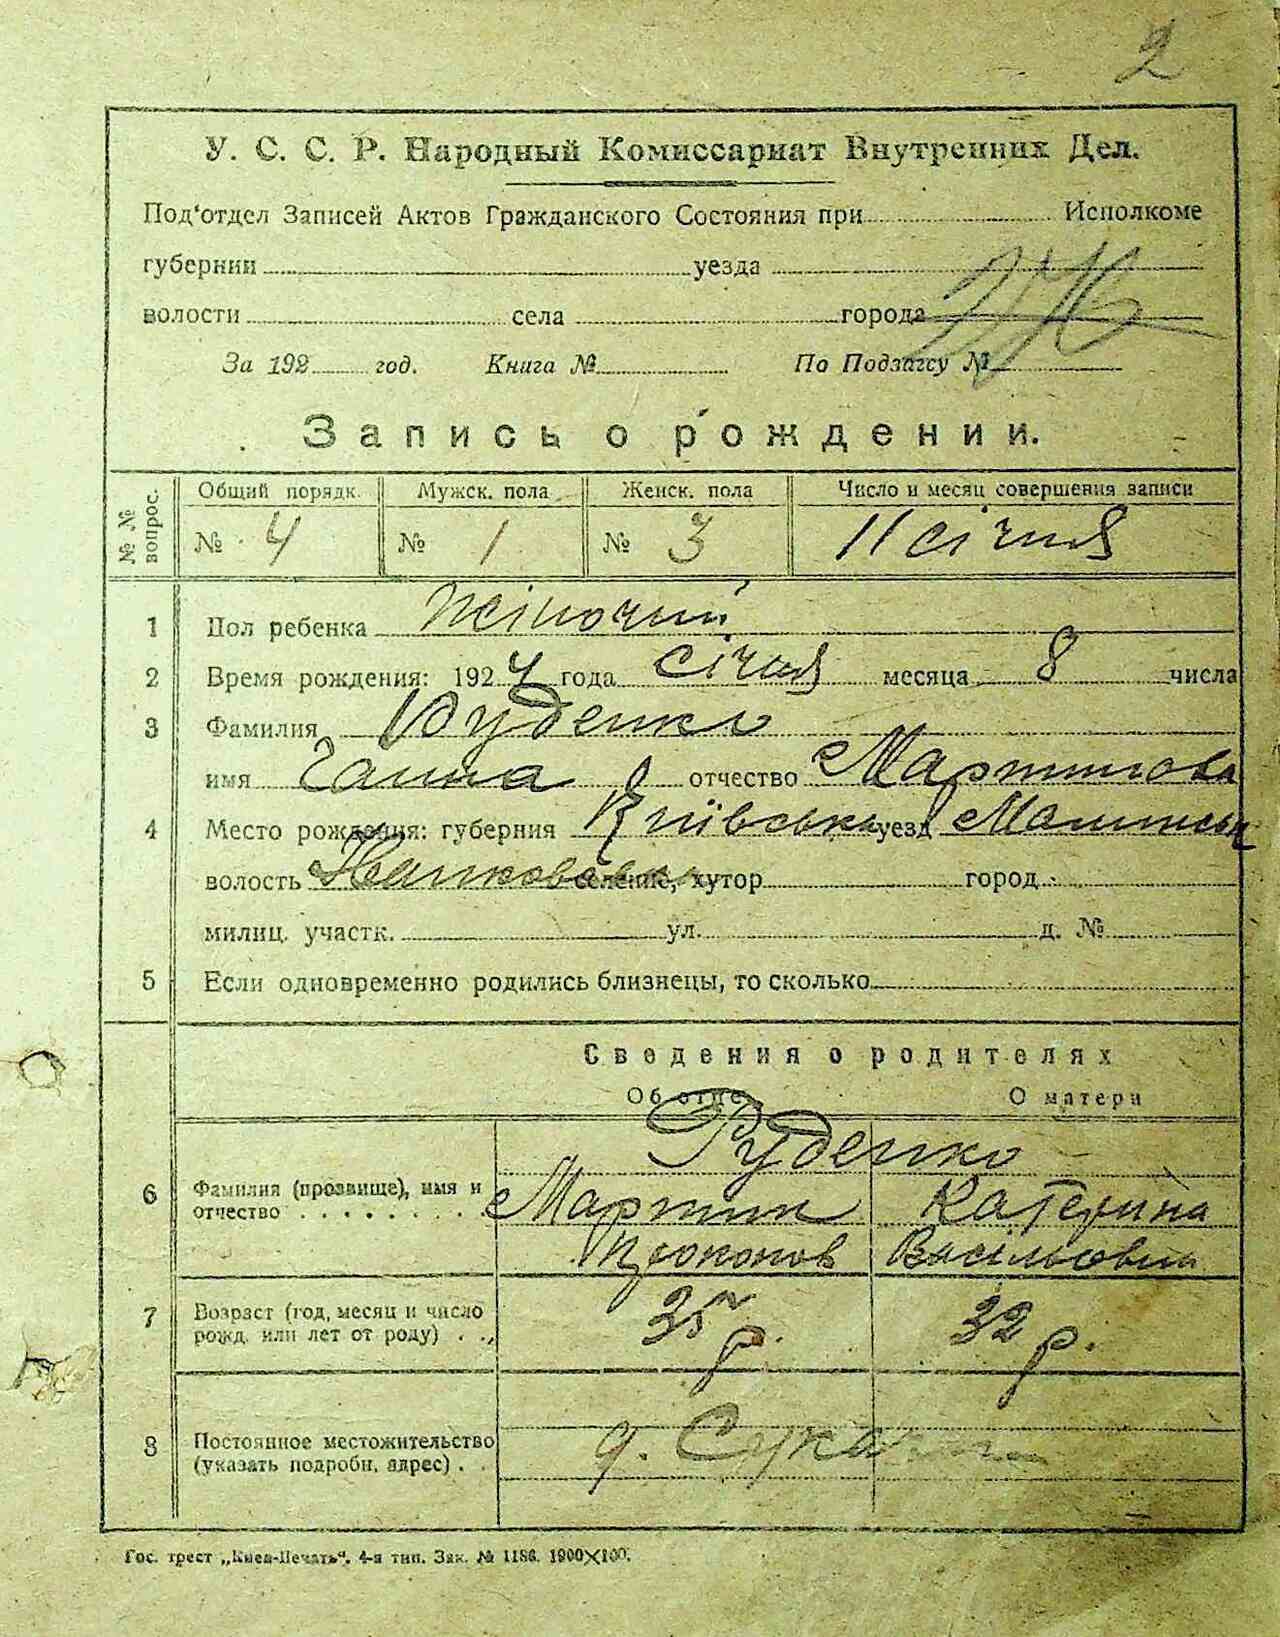 2
У. С. С. Р. Народный Комиссариат Внутренних Дел.
Под'отдел Записей Актов Гражданского Состояния при Исполкоме
губернии уезда
волости села города
За 192 год. Книга № По Подзагсу №
Запись о рождении.
№ № вопрос. Общий порядк. Мужск. пола Женск. пола Число и месяц совершения записи
№ 4 № 1 № 3 11 січня
1 Пол ребенка жіночий
2 Время рождения: 1924 года січня месяца 8 числа
3 Фамилия Руденко
имя Ганна отчество Мартинова
4 Место рождения: губерния Київська уезд
волость селение, хутор город
милиц. участк. ул. д. №
5 Если одновременно родились близнецы, то сколько
Сведения о родителях
Об отце О матери
Руденко
6 Фамилия (прозвище), имя и Мартин Катерина
отчество Прокопов
7 Возраст (год, месяц и число 35 р. 32 р.
рожд. или лет от роду)
8 Постоянное местожительство
(указать подробн. адрес)
Гос. трест „Киев-Печать“. 4-я тип. Зак. № 1186. 1900×100.